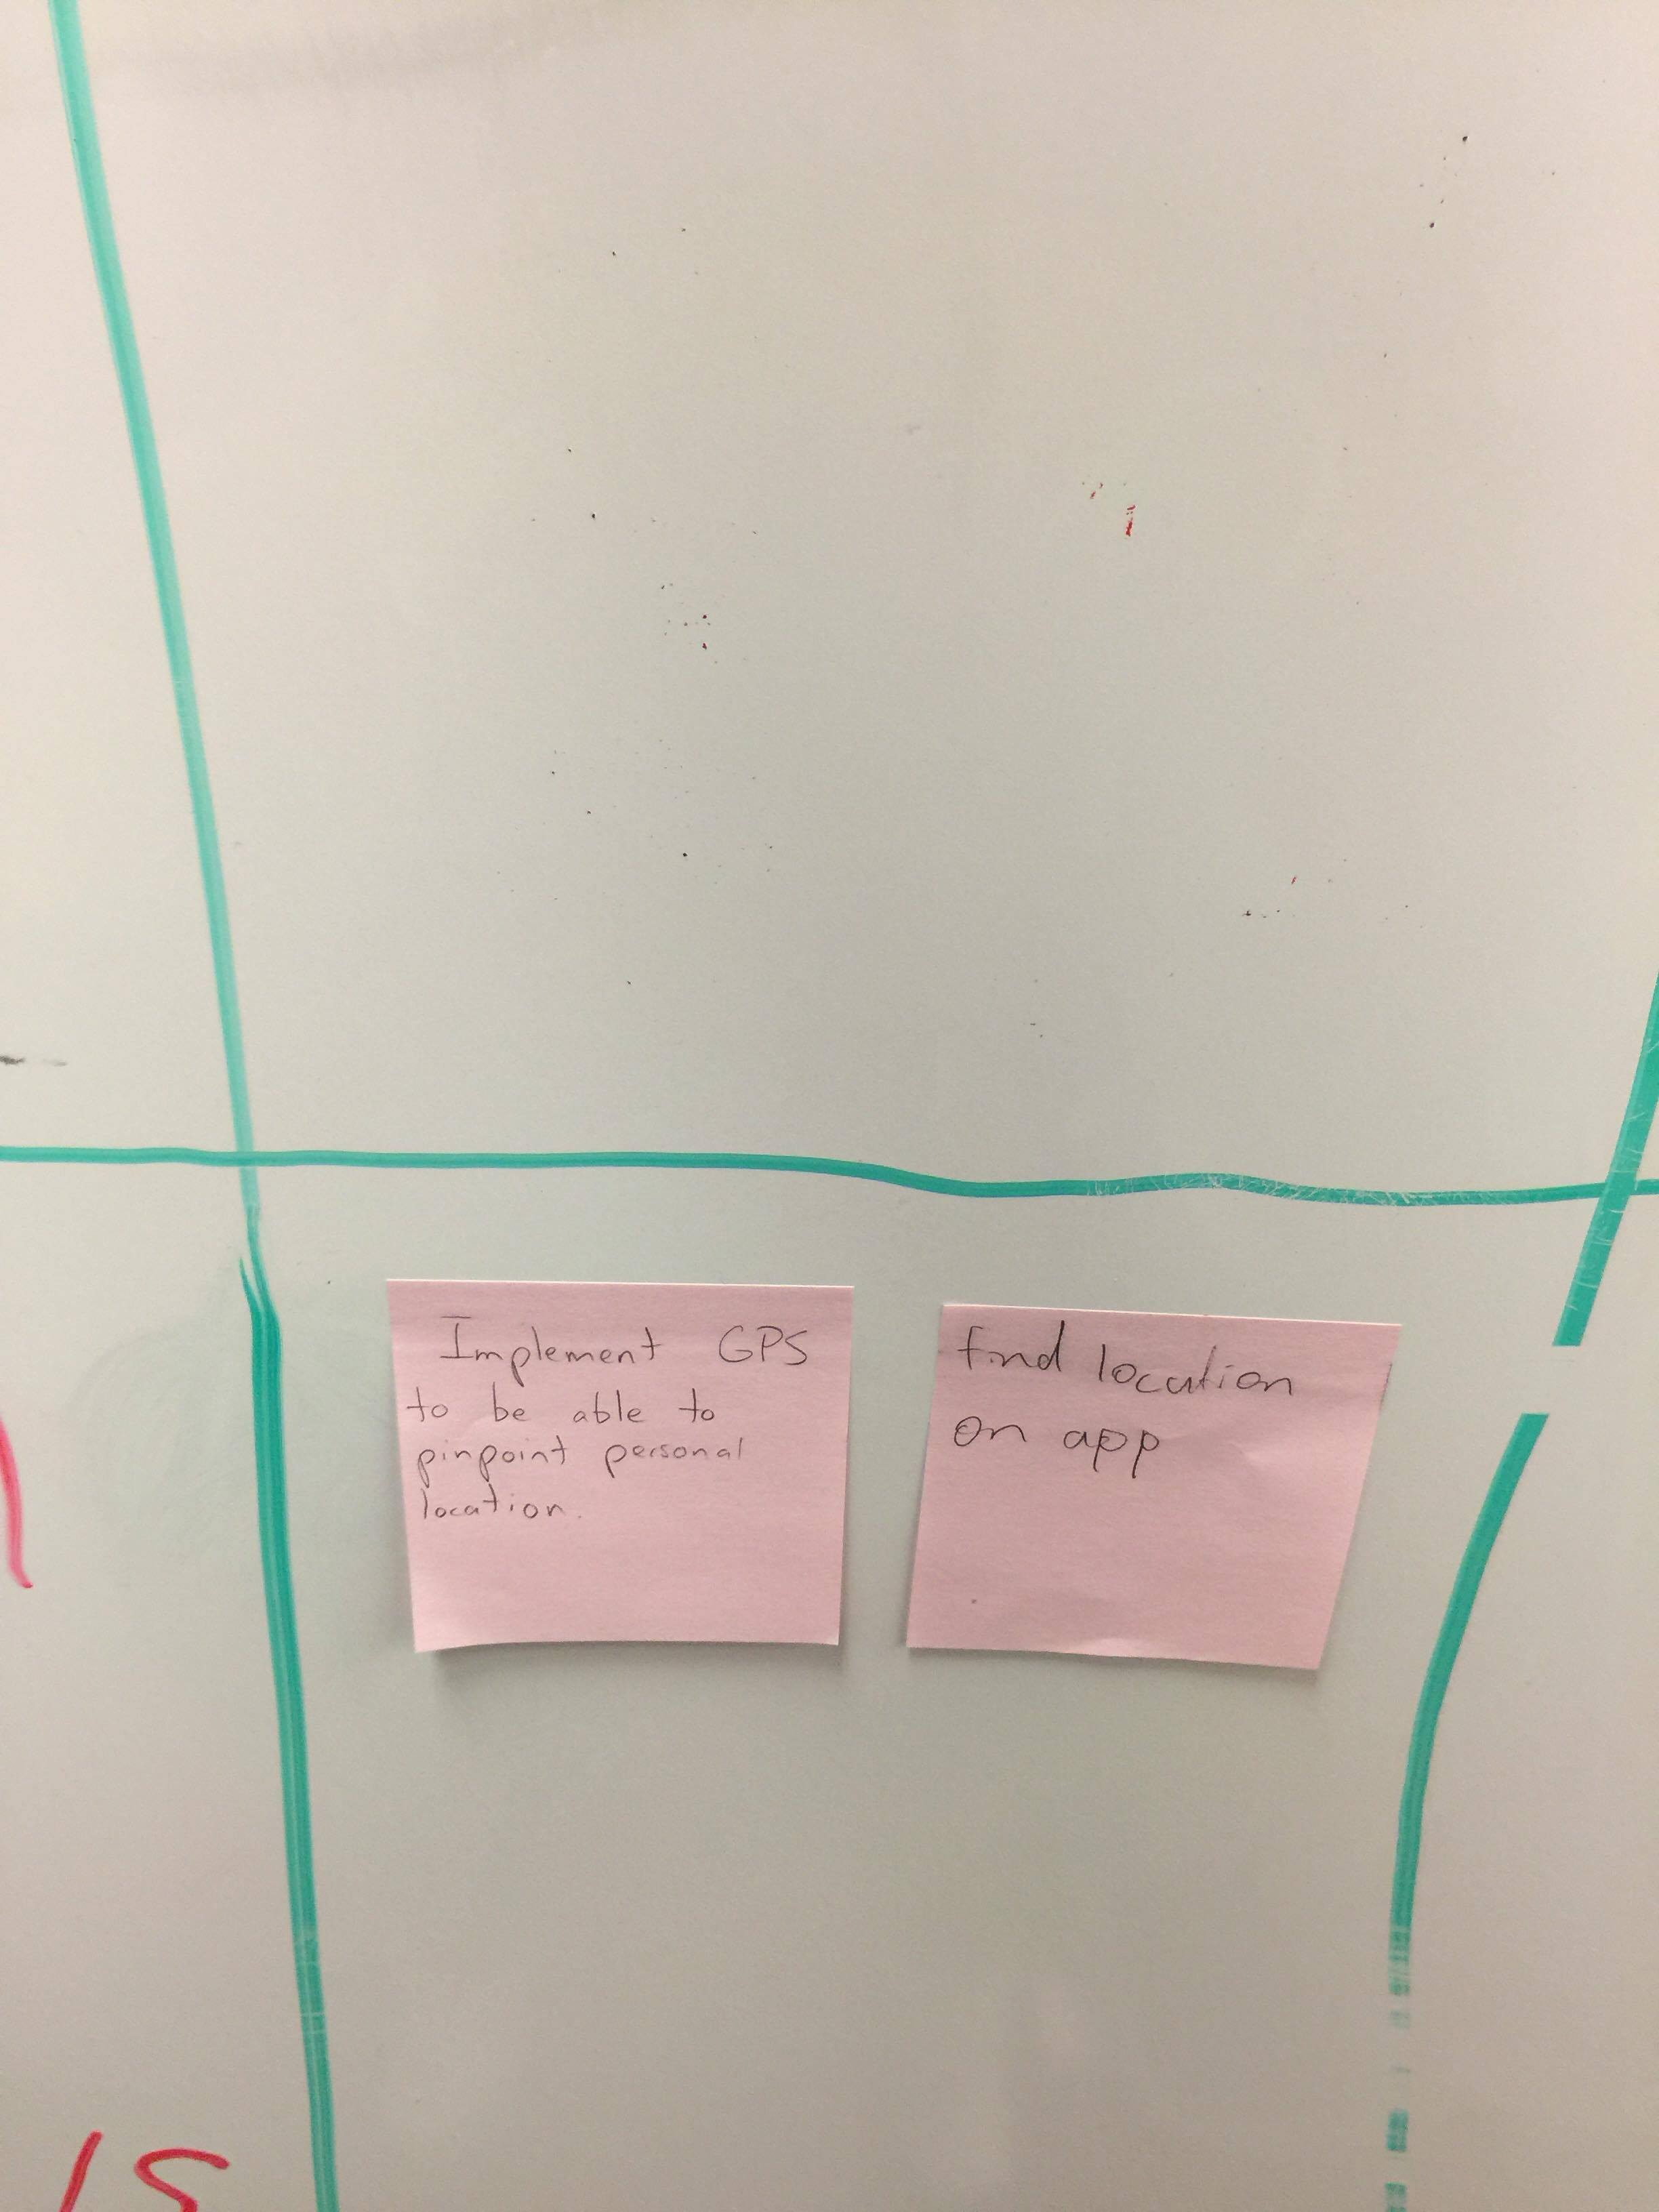 Implement GPS
to be able to
pinpoint personal
location.
find location
on app